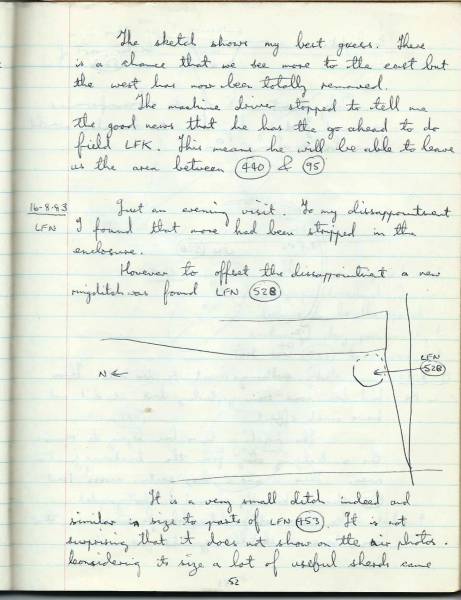 The sketch shows my best guess. There
is a chance that we see more to the east but
the west has now been totally removed.
The machine driver stopped to tell me
the good news that he has the go ahead to do
field LFK. This means he will be able to leave
us the area between 440 & 95
16-8-83
LFN
Just an evening visit. To my dissappointment
I found that more had been stripped in the
enclosure.
However to offset the dissappointment a new
ringditch was found LFN 528
N ←
LFN
528
It is a very small ditch indeed and
similar in size to parts of LFN 453. It is not
surprising that it does not show on the air photos.
Considering its size a lot of useful sherds came
52